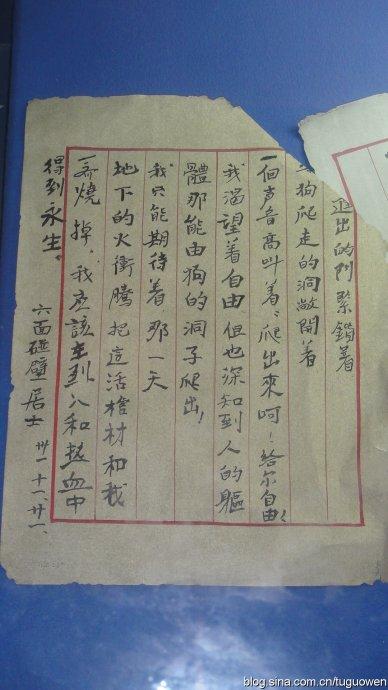 出的門緊鎖着
狗爬走的洞敞開着
一個声音高叫着、爬出來呵！給尔自由！
我渴望着自由但也深知到人的軀
體那能由狗的洞子爬出！
我只能期待着那一天
地下的火衝騰把這活棺材和我
一齊燒掉，我应該在烈火和热血中
得到永生。
六面碰壁居士 卅一、十一、廿一、
blog.sina.com.cn/tuguowen